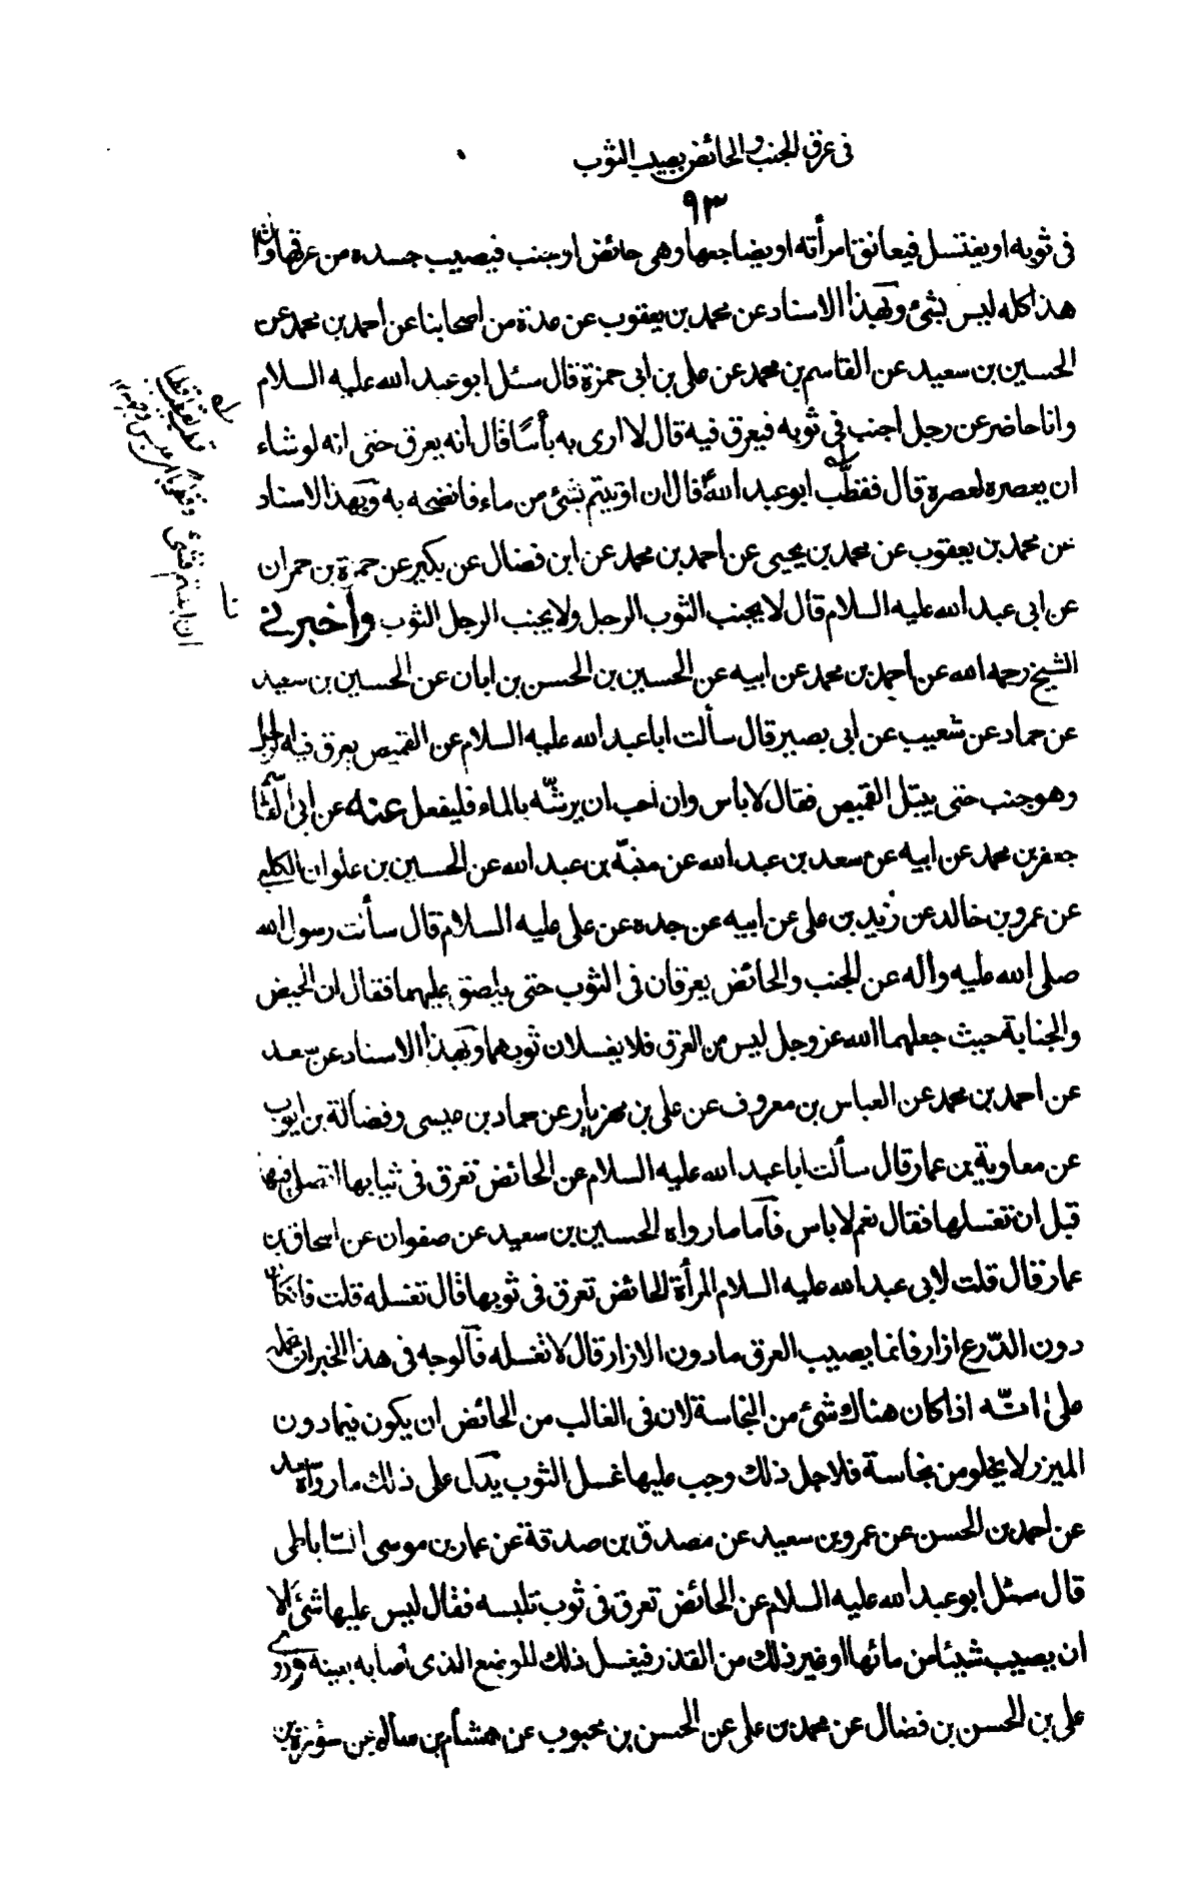 فى عرق الجنب والحائض يصيب الثوب
٩٣
فى ثوبه او يغتسل فيعانق امرأته او يضاجعها وهى حائض او جنب فيصيب جسده من عرقها قال
هذا كله ليس بشئ وبهذا الاسناد عن محمد بن يعقوب عن عدة من اصحابنا عن احمد بن محمد عن
الحسين بن سعيد عن القاسم بن محمد عن على بن ابى حمزة قال سئل ابو عبد الله عليه السلام
وانا حاضر عن رجل اجنب فى ثوبه فيعرق فيه قال لا ارى به بأسًا قال انه يعرق حتى انه لو شاء
ان يعصره لعصره قال فقطّب ابو عبد الله ع فقال ان اوبيتم بشئ من ماء فانضحه به وبهذا الاسناد
عن محمد بن يعقوب عن محمد بن يحيى عن احمد بن محمد عن ابن فضال عن بكير عن حمزة بن حمران
عن ابى عبد الله عليه السلام قال لا يجنب الثوب الرجل ولا يجنب الرجل الثوب وأخبرنى
الشيخ رحمه الله عن احمد بن محمد عن ابيه عن الحسين بن الحسن بن ابان عن الحسين بن سعيد
عن حماد عن شعيب عن ابى بصير قال سألت ابا عبد الله عليه السلام عن القميص يعرق فيه الرجل
وهو جنب حتى يبتل القميص فقال لا باس وان احب ان يرشّه بالماء فليفعل عنه عن ابى القاسم
جعفر بن محمد عن ابيه عن سعد بن عبد الله عن منبّه بن عبد الله عن الحسين بن علوان الكلبى
عن عمرو بن خالد عن زيد بن على عن ابيه عن جده عن على عليه السلام قال سألت رسول الله
صلى الله عليه وآله عن الجنب والحائض يعرقان فى الثوب حتى يلصق عليهما فقال ان الحيض
والجنابة حيث جعلهما الله عز وجل ليس من العرق فلا يغسلان ثوبهما وبهذا الاسناد عن سعد
عن احمد بن محمد عن العباس بن معروف عن على بن مهزيار عن حماد بن عيسى وفضالة بن ايوب
عن معاوية بن عمار قال سألت ابا عبد الله عليه السلام عن الحائض تعرق فى ثيابها اتصلى فيها
قبل ان تغسلها فقال نعم لا باس فأما ما رواه الحسين بن سعيد عن صفوان عن اسحاق بن
عمار قال قلت لابى عبد الله عليه السلام المرأة الحائض تعرق فى ثوبها قال تغسله قلت فان كان
دون الدّرع ازار فانما يصيب العرق ما دون الازار قال لا تغسله فالوجه فى هذا الخبر ان نحمله
على انّه اذا كان هناك شئ من النجاسة لان فى الغالب من الحائض ان يكون فيما دون
الميزر لا يخلو من نجاسة فلاجل ذلك وجب عليها غسل الثوب يدل على ذلك ما رواه سعد
عن احمد بن الحسن عن عمرو بن سعيد عن مصدق بن صدقة عن عمار بن موسى الساباطى
قال سئل ابو عبد الله عليه السلام عن الحائض تعرق فى ثوب تلبسه فقال ليس عليها شئ الا
ان يصيب شيئا من مائها او غير ذلك من القذر فيغسل ذلك الموضع الذى اصابه بعينه وروى
على بن الحسن بن فضال عن محمد بن على عن الحسن بن محبوب عن هشام بن سالم عن سورة بن